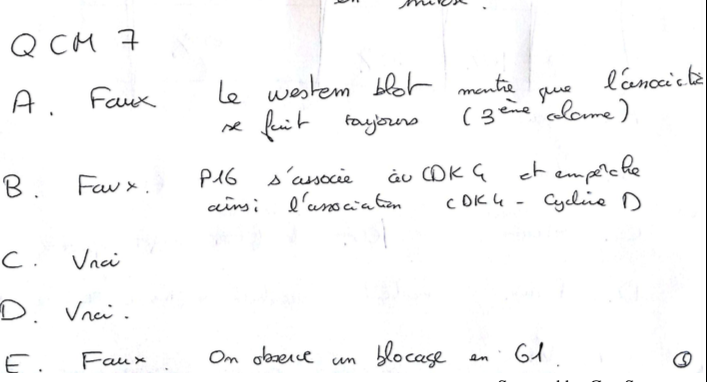 en mitose.
QCM 7
A. Faux Le western blot montre que l'associat
se fait toujours (3ème colonne)
B. Faux. P16 s'associe au CDK4 et empêche
ainsi l'association CDK4 - Cycline D
C. Vrai
D. Vrai.
E. Faux. On observe un blocage en G1.